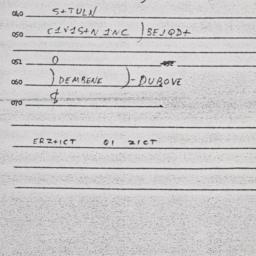 040 S+TULN
050 C1V1S+N 1NC )BEJQD+
051 0
060 )DEMBENE )-DUBOVE
070 ¢
ERZ+ICT 01 21CT